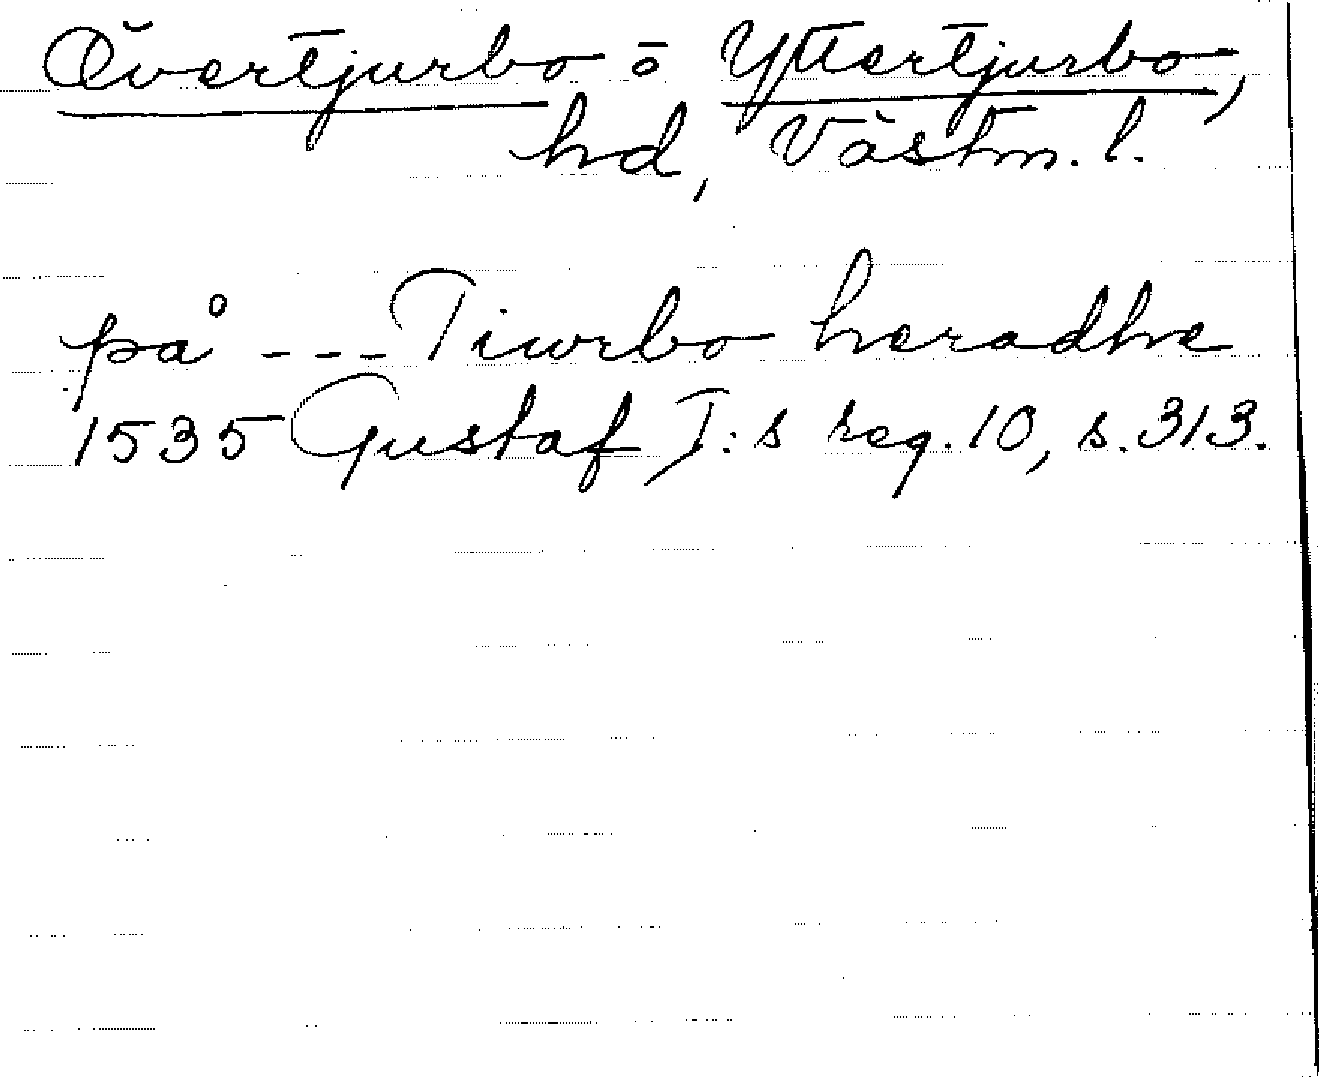 Övertjurbo o Yttertjurbo,
hd, Västm. l.
på --- Tiwrbo heradhe
1535 Gustaf I:s reg. 10, s. 313.